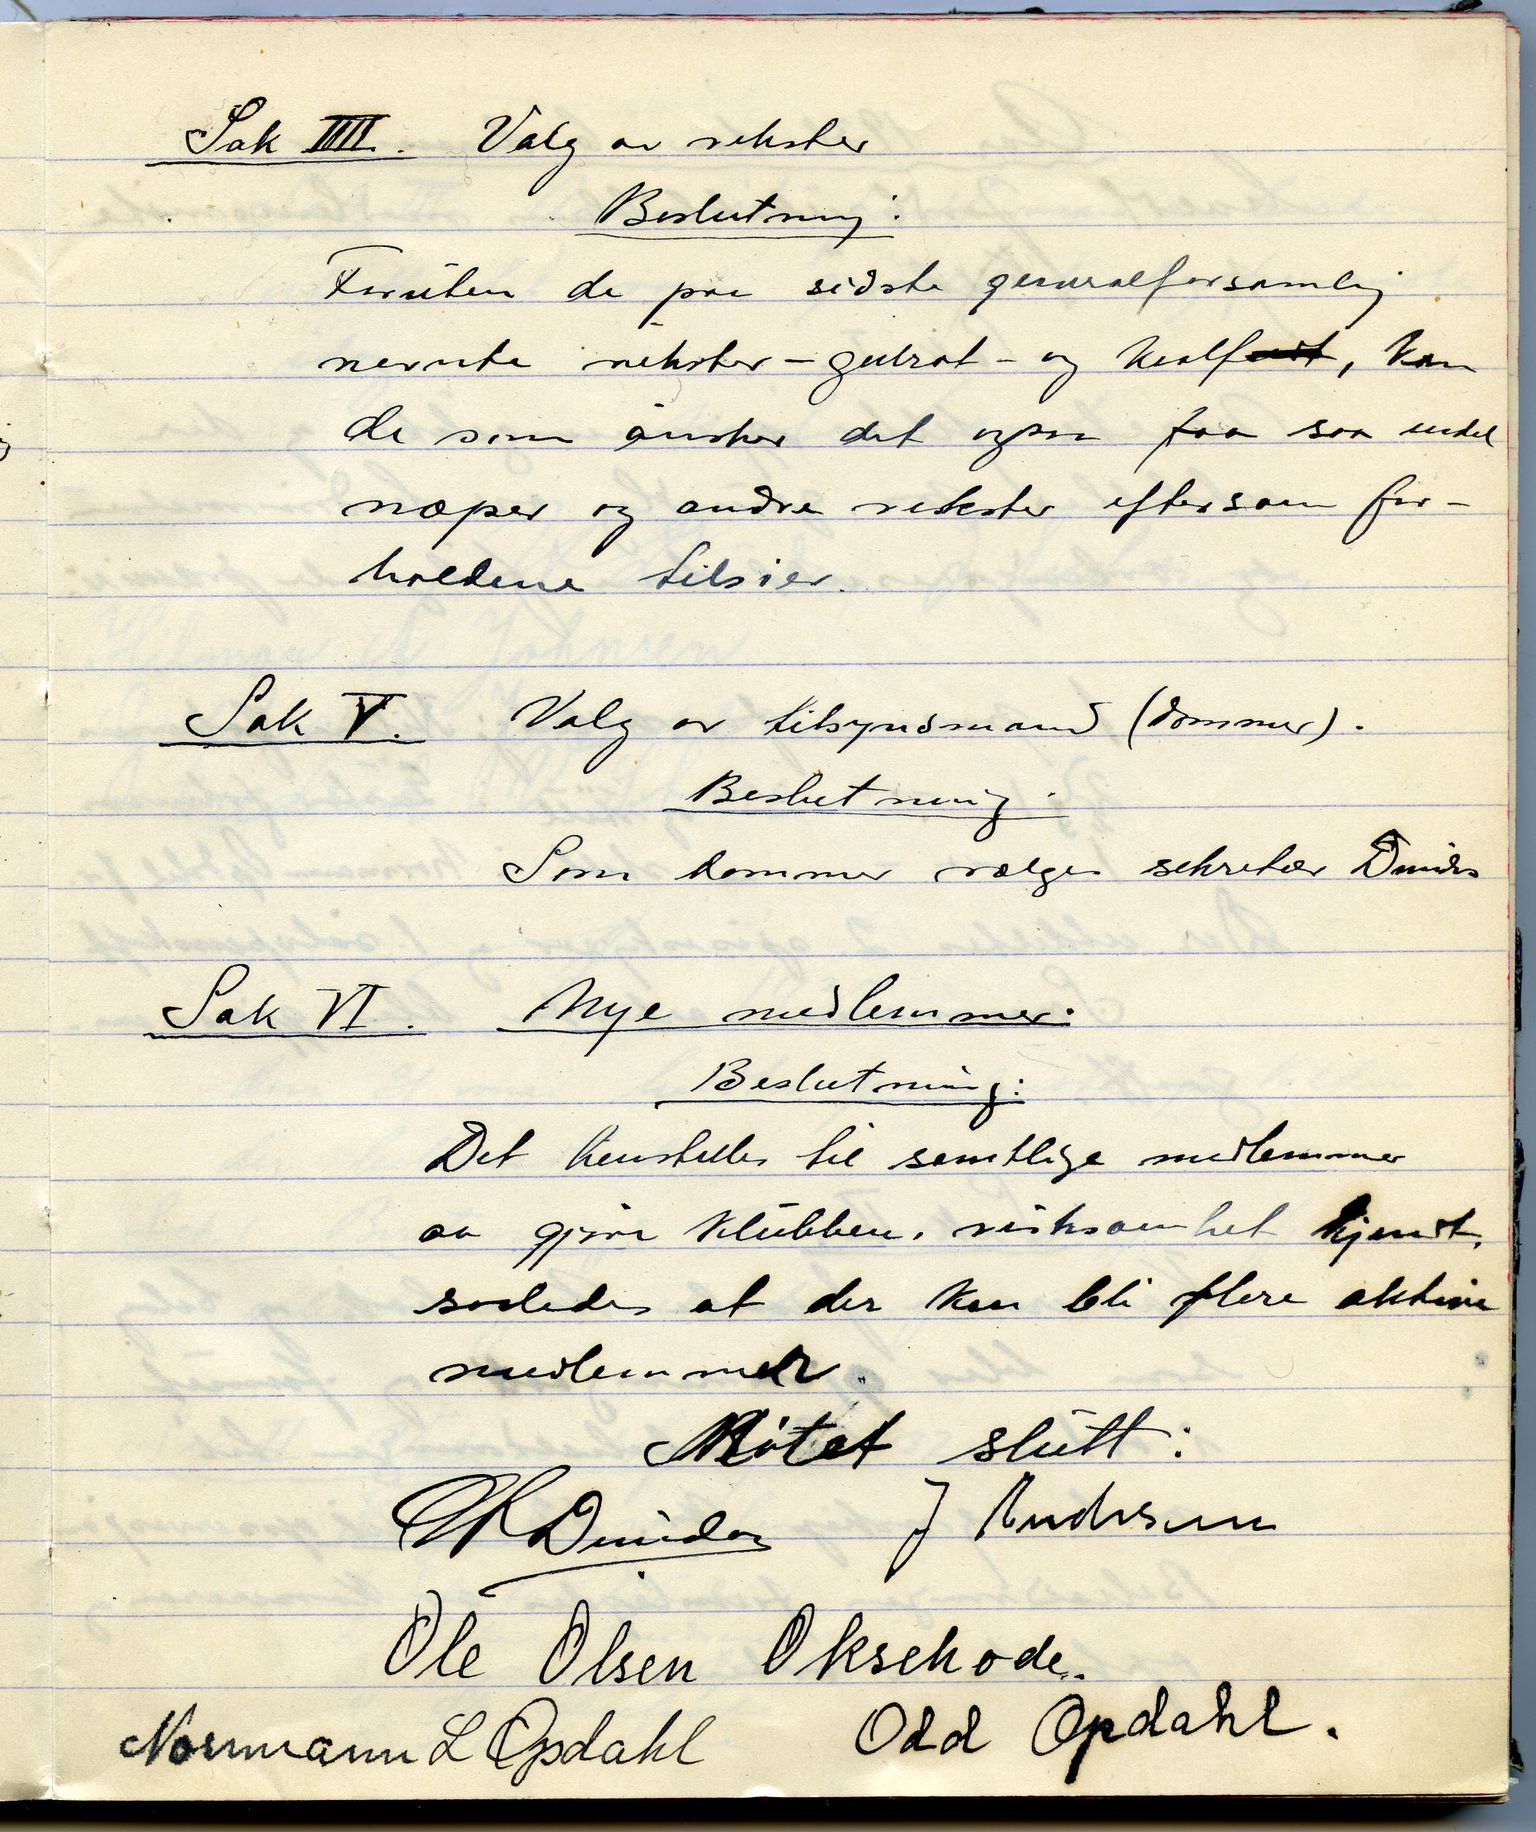 Sak IIII. Valg av vekster
Beslutning:
Foruten de paa sidste generalforsamling
nevnte vekster – gulrot – og kaal, kan
de som ønsker det ogsaa faa saa endel
næper og andre vekster eftersom for-
holdene tilsier.
Sak V. Valg av tilsynsmand (dommer).
Beslutning:
Som dommer vælges sekretær
Sak VI. Nye medlemmer:
Beslutning:
Det henstilles til samtlige medlemmer
aa gjøre klubbens virksomhet kjendt,
saaledes at der kan bli flere aktive
medlemmer.
Møtet slutt:
J Andersen
Ole Olsen Oksehode.
Normann L Opdahl Odd Opdahl.